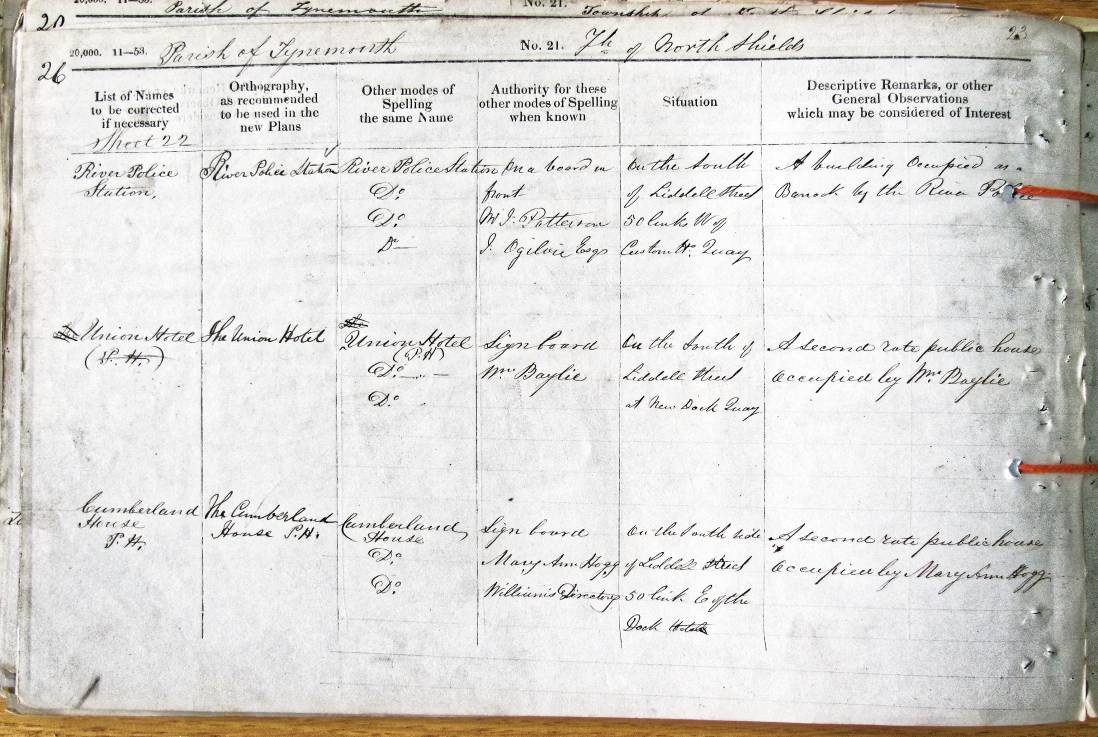 20
Parish of Tynemouth
No. 21.
Township of
20,000. 11—53. Parish of Tynemouth No. 21. Th of North Shields
23
26
List of Names to be corrected if necessary
Orthography, as recommended to be used in the new Plans
Other modes of Spelling the same Name
Authority for these other modes of Spelling when known
Situation
Descriptive Remarks, or other General Observations which may be considered of Interest
Sheet 22
River Police Station River Police Station On a board in On the South A building Occupied as a
Station, Do front of Liddell Street Barrack by the River Police
Do W. J. Patterson 50 links W of
Do J. Ogilvie Esq Custom Ho. Quay
Union Hotel The Union Hotel Union Hotel Sign board On the South of A second rate public house
(P.H.) (P.H)
Do Wm Baylie Liddell Street Occupied by Wm Baylie
Do at New Dock Quay
Cumberland The Cumberland Cumberland Sign board On the South side A second rate public house
House House P.H. House
P.H. Do Mary Ann Hogg of Liddell Street Occupied by Mary Ann Hogg
Do William's Directory 50 link E of the
Dock Hotel